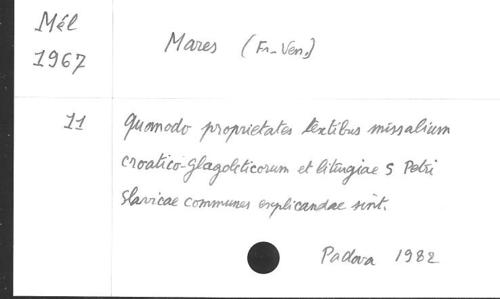 Mél
1967
Mares (Fr. Ven.)
11
Quomodo proprietates textibus missalium
croatico-glagoliticorum et liturgiae S Petri
slavicae communes explicandae sint.
Padova 1982